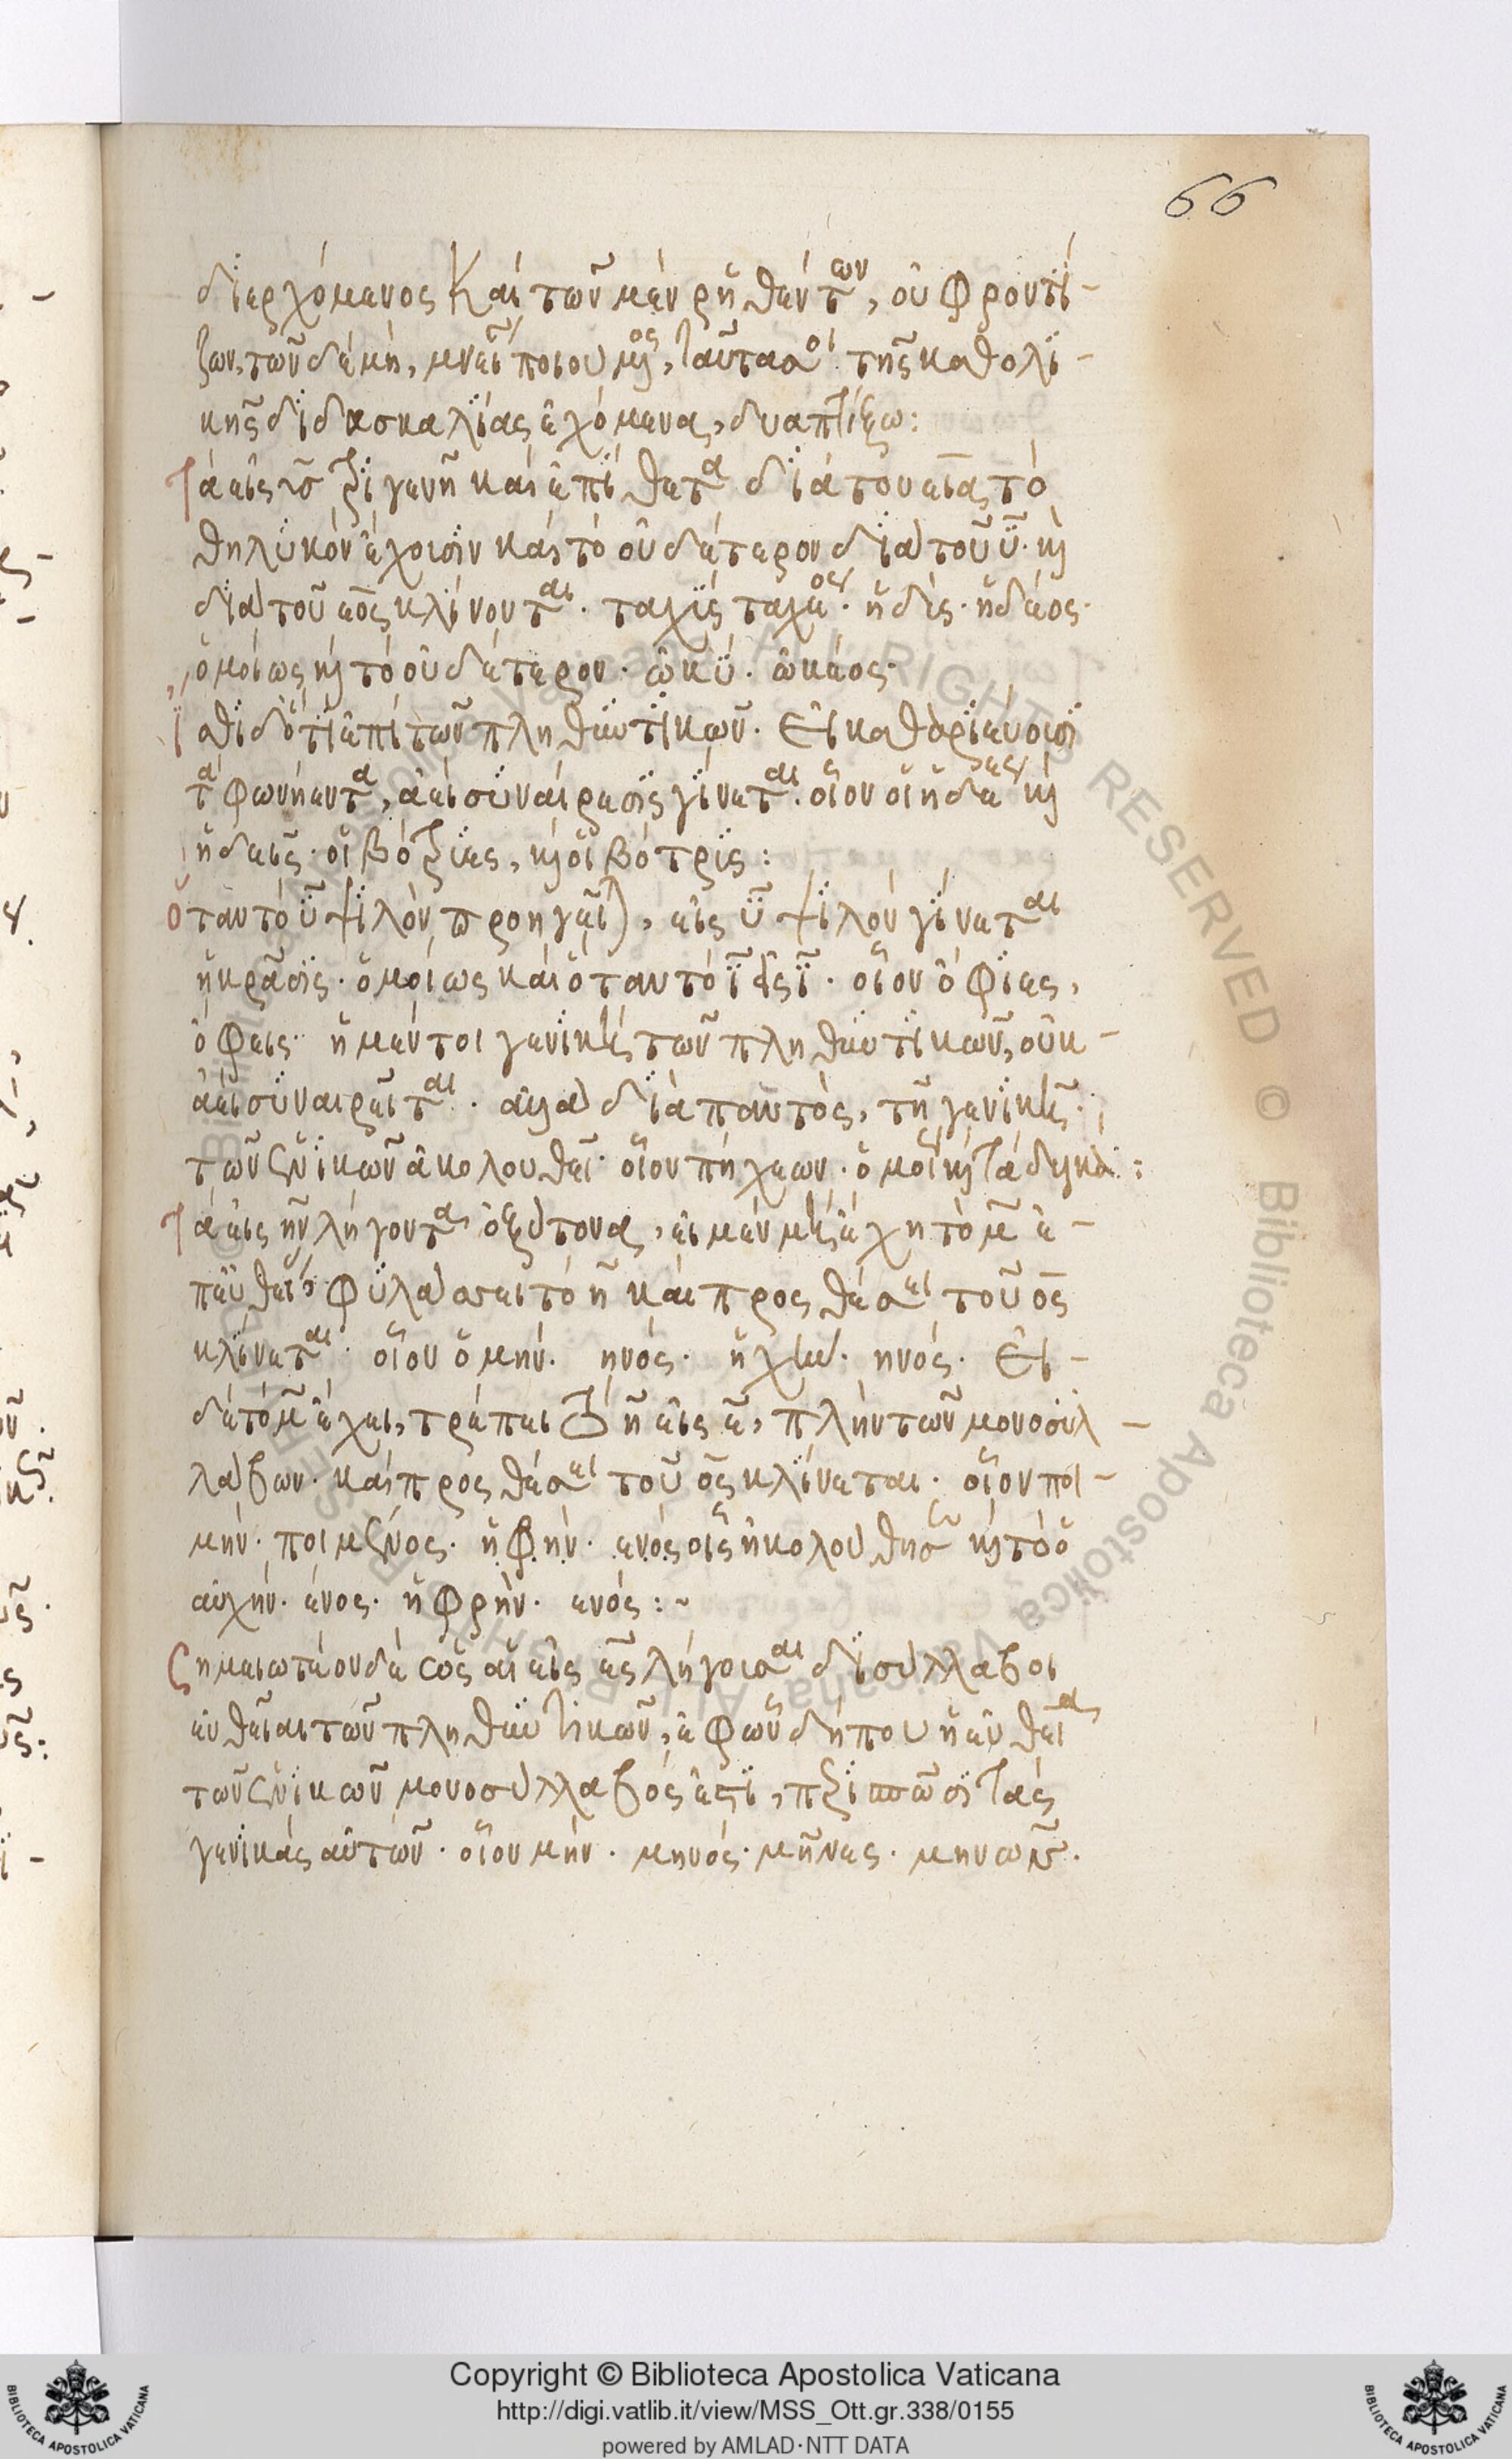 66
διερχόμενος καὶ τῶν μὲν ῥηθέντων, οὐ φροντί-
ζων, τῶν δὲ μὴ, μνείαν ποιούμενος, ταῦτα τῆς καθολι-
κῆς διδασκαλίας ἐχόμενα,
τὰ εἰς υς τριγενῆ καὶ ἐπίθετα διὰ τοῦ εια τὸ
θηλυκὸν ἔχουσιν καὶ τὸ οὐδέτερον διὰ τοῦ ῡ. καὶ
διὰ τοῦ εος κλίνονται. ταχὺς ταχέος. ἡδὺς. ἡδέος.
ὁμοίως καὶ τὸ οὐδέτερον. ὠκὺ. ὠκέος.
ἴσθι δ' ὅτι ἐπὶ τῶν πληθυντικῶν. εἰ καθαριεύουσι
τὰ φωνήεντα, ἀεὶ συναίρεσις γίνεται. οἷον οἱ ἡδέες καὶ
ἡδεῖς. οἱ βότρυες, καὶ οἱ βότρυς:
ὅταν τὸ ῡ ψιλὸν προηγεῖται, εἰς ῡ ψιλὸν γίνεται
ἡ κρᾶσις. ὁμοίως καὶ ὅταν τὸ ῑ εἰς ῑ. οἷον ὄφιες,
ὄφεις. ἡ μέντοι γενικὴ τῶν πληθυντικῶν, οὐκ
ἀεὶ συναιρεῖται. ἀλλὰ διὰ παντὸς, τῇ γενικῇ
τῶν ἑνικῶν ἀκολουθεῖ. οἷον πήχεων. ὁμοίως καὶ τὰ δυικά:
τὰ εἰς ην λήγοντα ὀξύτονα, εἰ μὲν μὴ ἔχῃ τὸ μ̄ ἐ-
π' εὐθείας φυλάσσει τὸ η̄ καὶ προσθέσει τοῦ ος
κλίνεται. οἷον ὁ μήν. ηνός. ἡ χήν. ηνός. Εἰ
δὲ τὸ μ̄ ἔχει, τρέπει τὸ η̄ εἰς ε̄, πλὴν τῶν μονοσυλ-
λάβων. καὶ προσθέσει τοῦ ος κλίνεται. οἷον ποι-
μήν. ποιμένος. ἡ φήν. ενός οἷς ἠκολούθησε καὶ τὸ ὁ
αὐχήν. ένος. ἡ φρήν. ενός:~
Σημειωτέον δὲ ὡς αἱ εἰς ες λήγουσαι δισύλλαβοι
εὐθεῖαι τῶν πληθυντικῶν, ἐφ' ὧν δήπου ἡ εὐθεῖα
τῶν ἑνικῶν μονοσύλλαβός ἐστι, περισπῶσι τὰς
γενικὰς αὐτῶν. οἷον μήν. μηνός. μῆνες. μηνῶν.
Copyright © Biblioteca Apostolica Vaticana
http://digi.vatlib.it/view/MSS_Ott.gr.338/0155
powered by AMLAD·NTT DATA